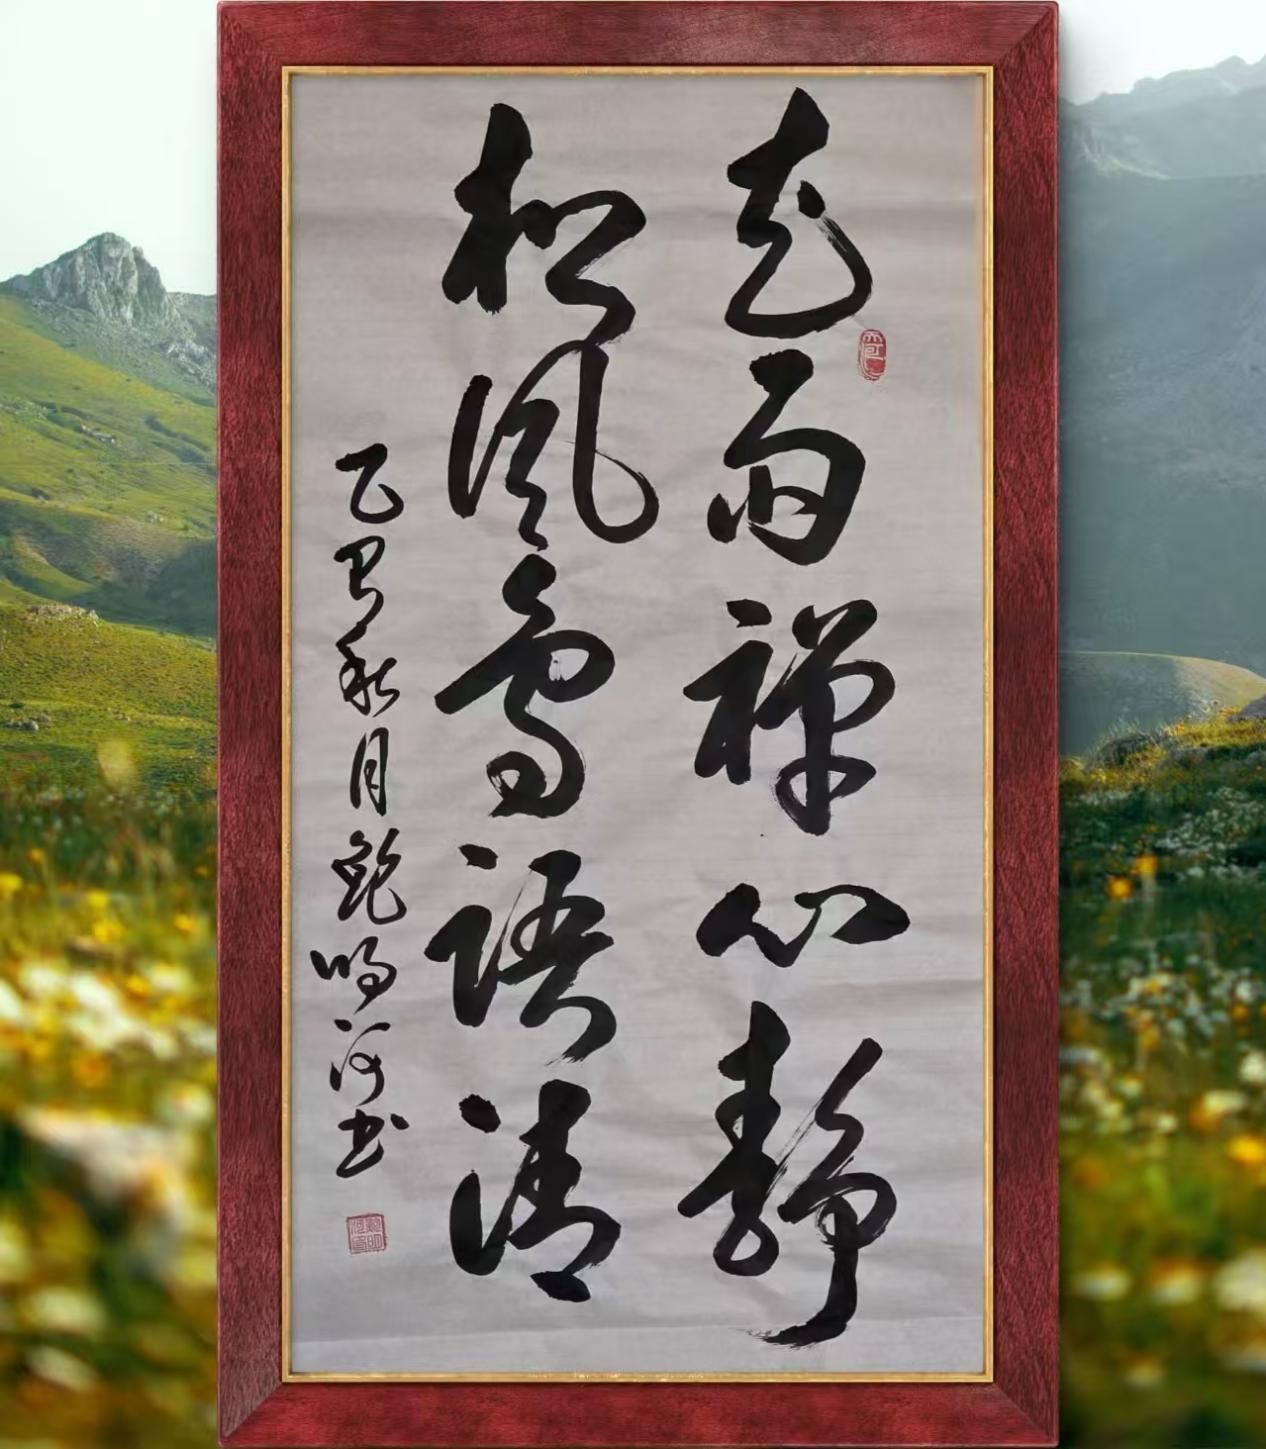 花雨禅心静
松风鸟语清
乙巳秋月鲍鸣河书